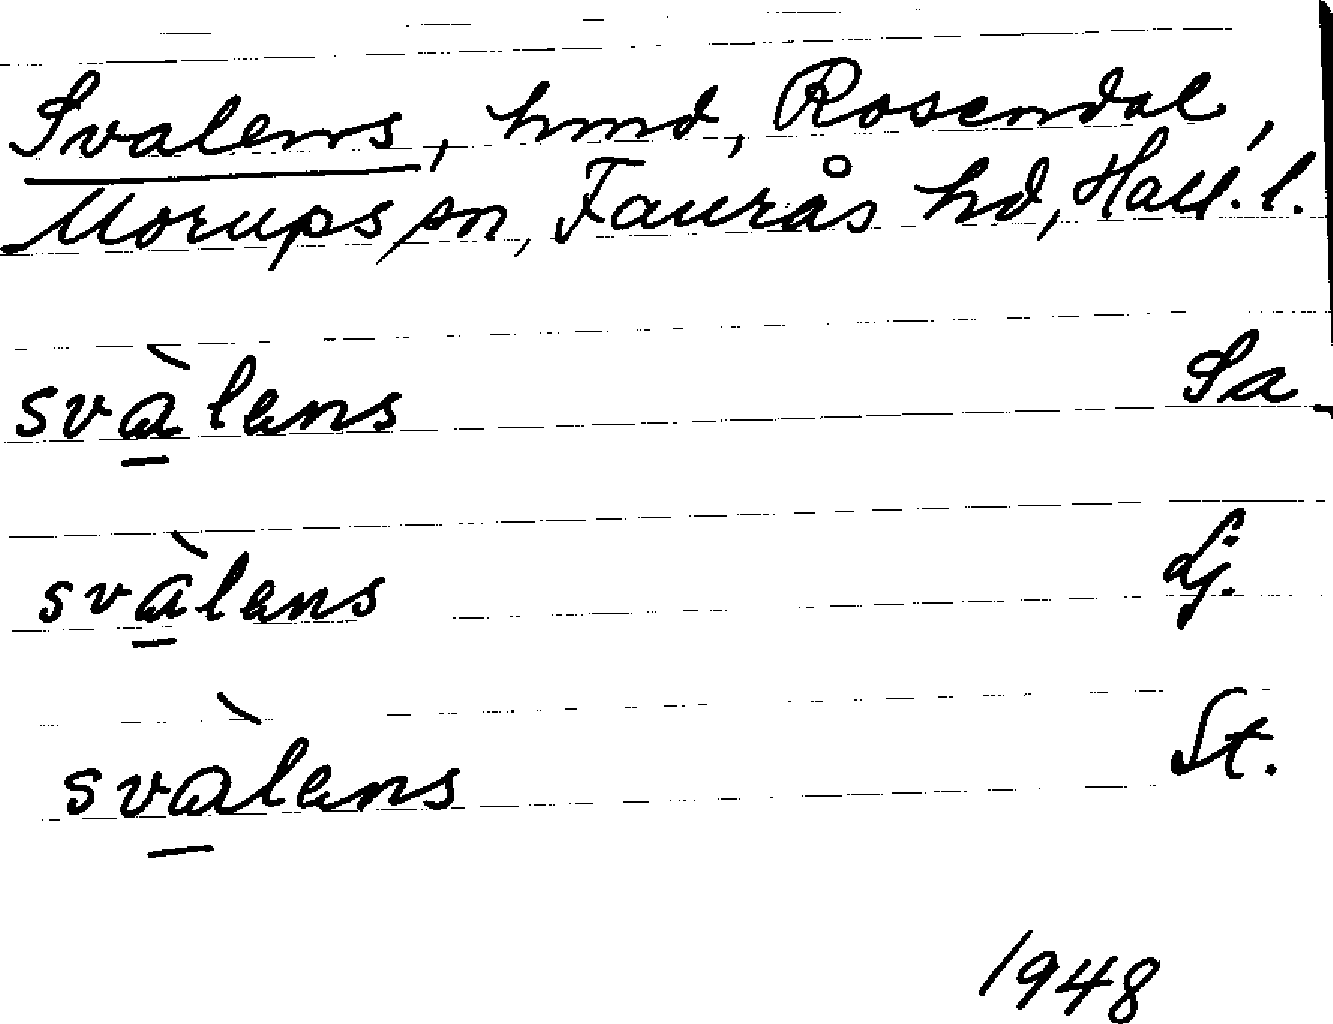 Svalens, hmd, Rosendal,
Morups sn, Faurås hd, Hall. l.
svàlens Sa
svàlens Lj.
svàlens St.
1948